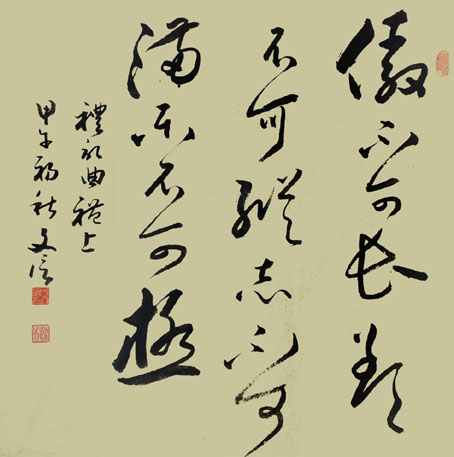 傲不可長欲
不可縱志不可
滿樂不可極
禮記曲禮上
甲午初秋文